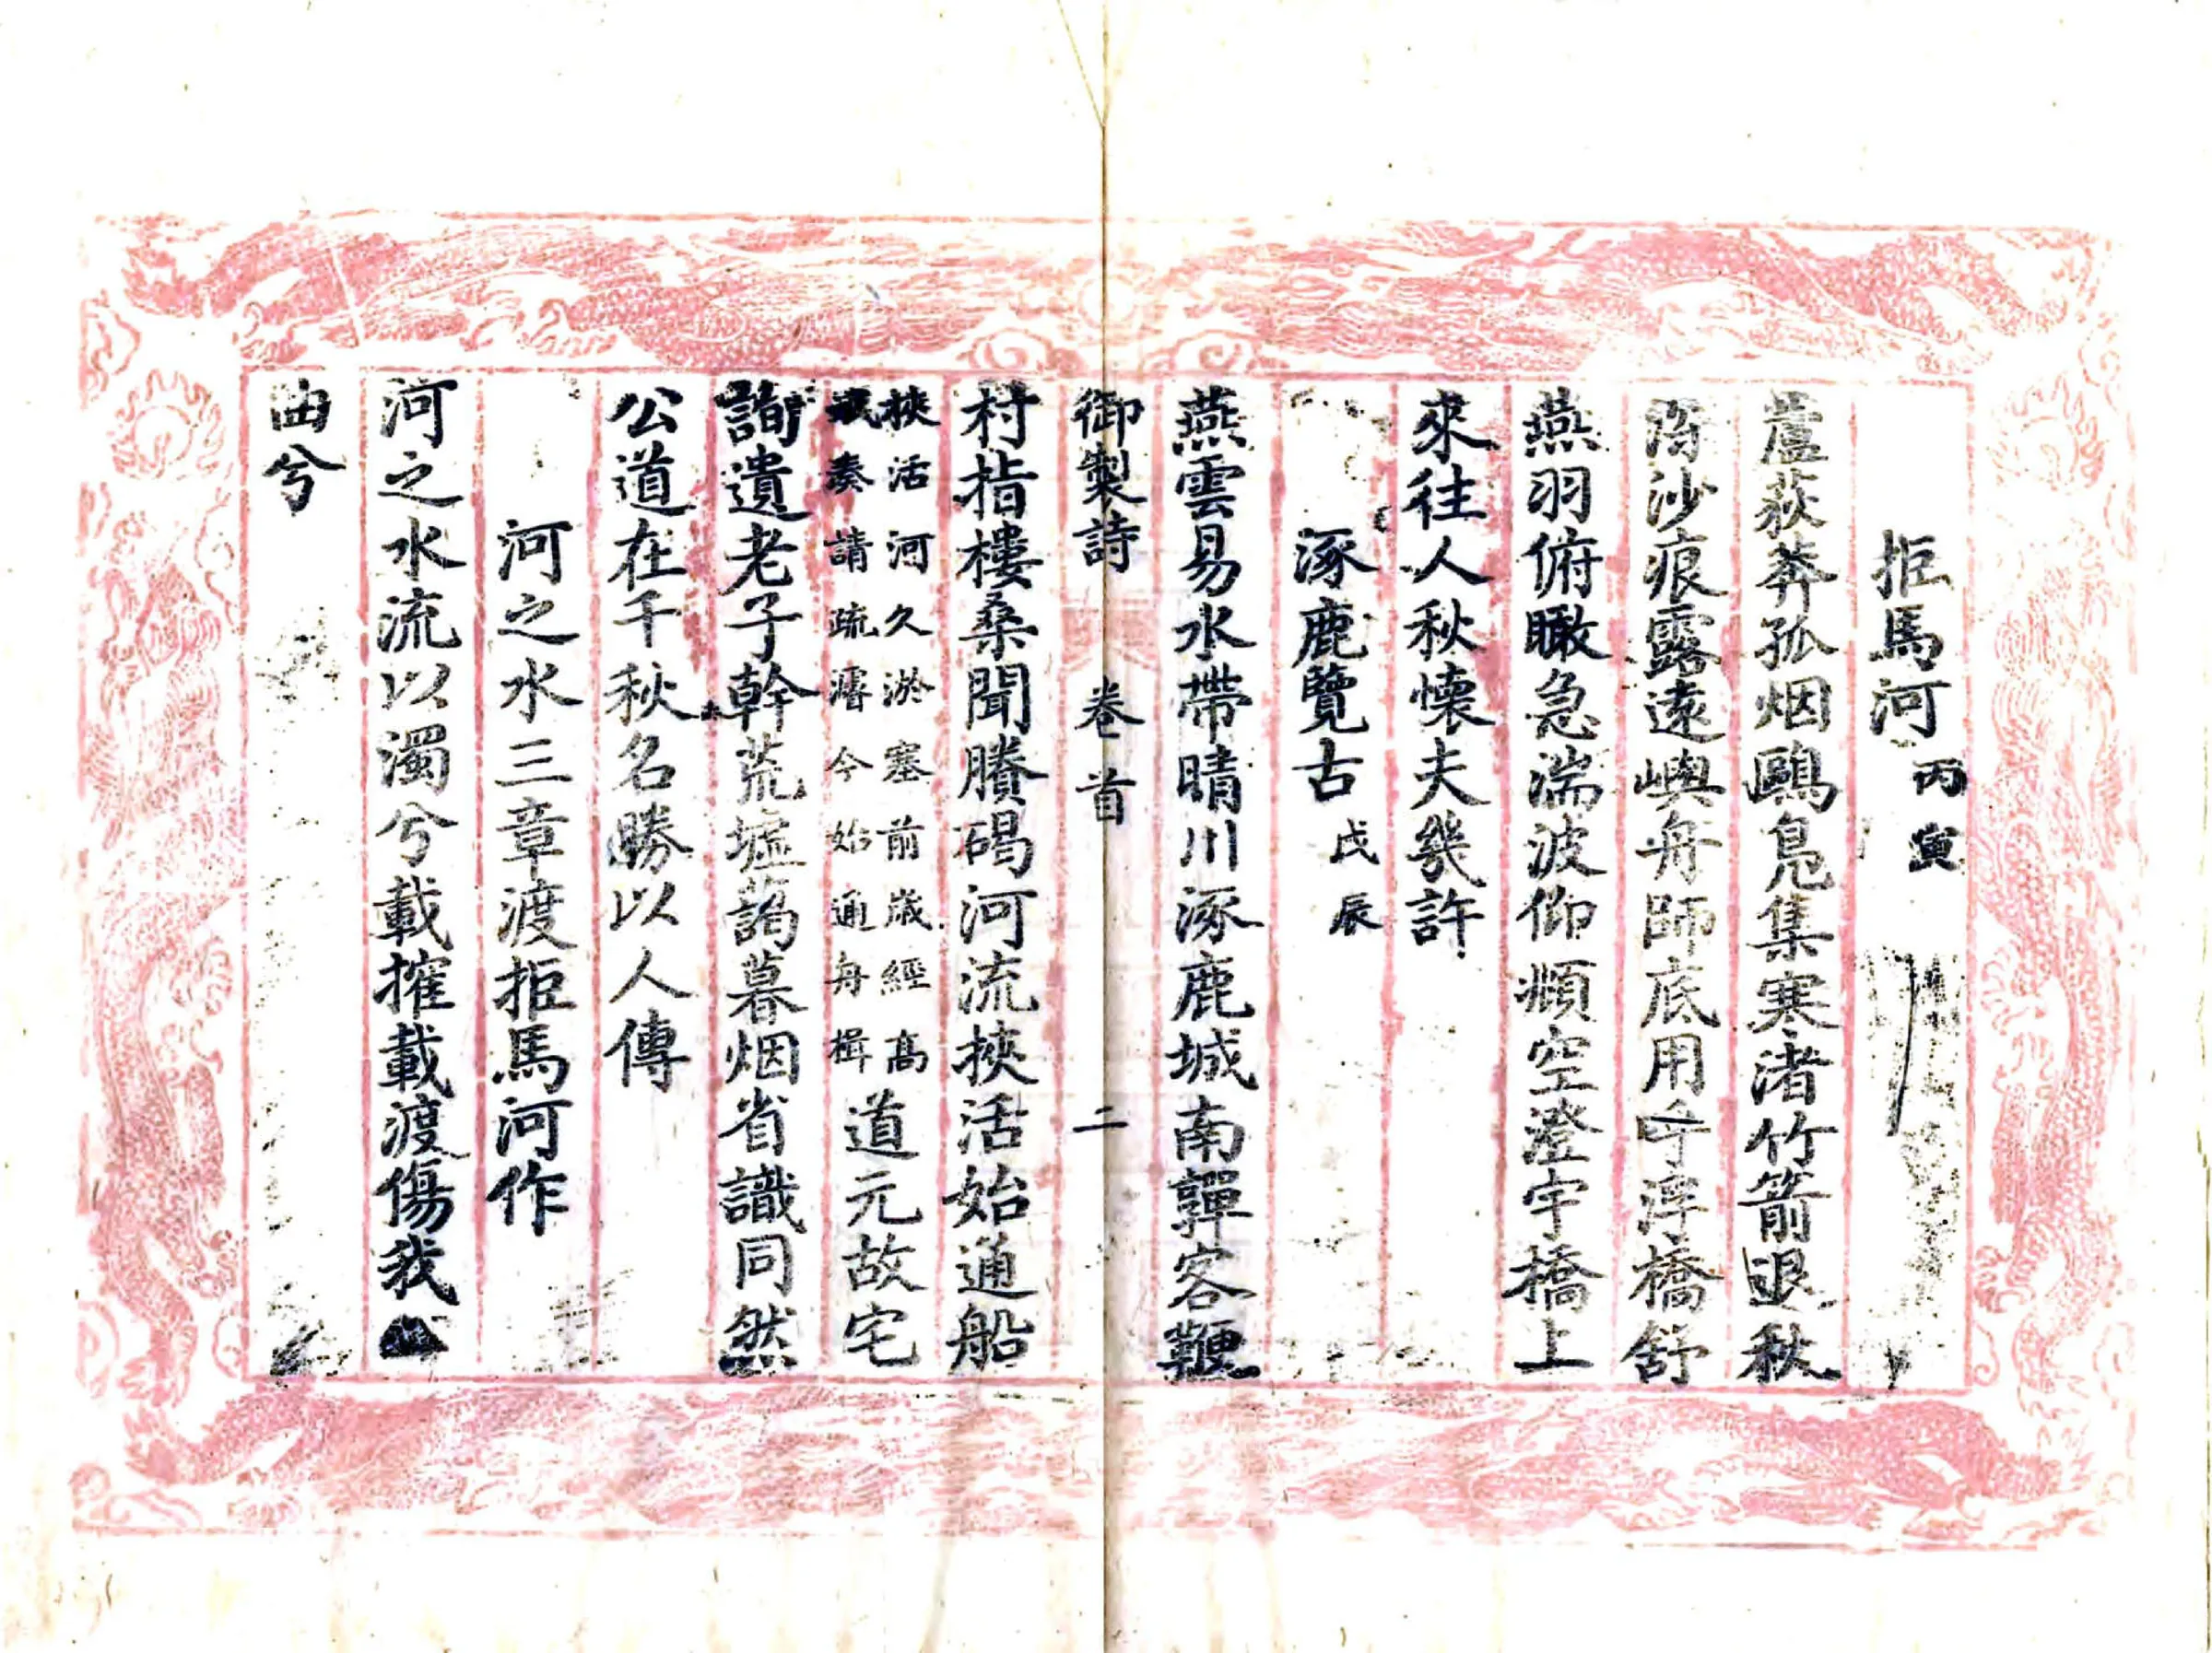 拒馬河 丙寅
蘆荻莽孤烟鷗鳧集寒渚竹箭退秋
沙痕露遠嶼舟師底用呼浮橋舒
燕羽俯瞰急湍波仰頫空澄宇橋上
來往人秋懷夫幾許
涿鹿覽古 戊辰
燕雲易水帶晴川涿鹿城南嚲客鞭
御製詩 卷首 二
村指樓桑聞賸碣河流挾活始通船
挾活河久淤塞前歲經高
斌奏請疏濬今始通舟楫
道元故宅
詢遺老子幹荒墟蔼暮烟省識同然
公道在千秋名勝以人傳
河之水三章渡拒馬河作
河之水流以濁兮載摧載渡傷我
曲兮